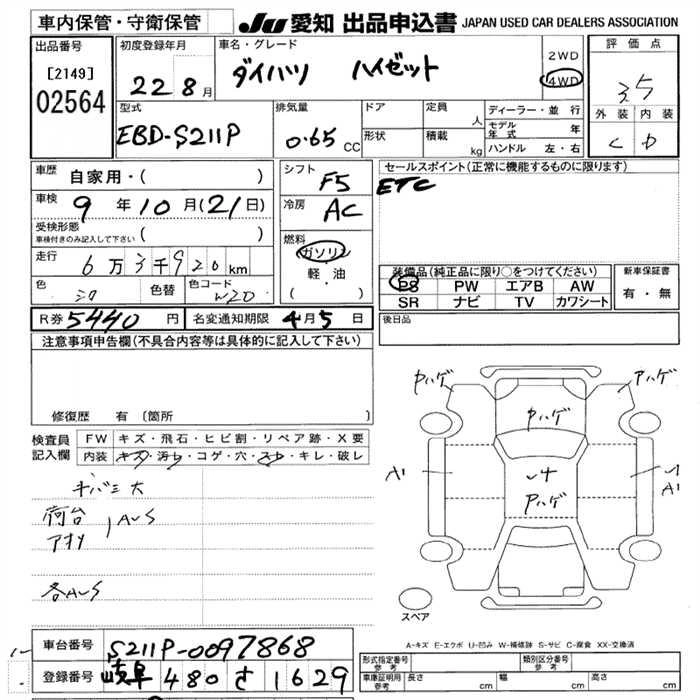 車内保管・守衛保管
JU 愛知 出品申込書 JAPAN USED CAR DEALERS ASSOCIATION
出品番号
[2149]
02564
初度登録年月
22 8月
車名・グレード
ダイハツ ハイゼット
2WD
4WD
評価点
3.5
外装 内装
C D
型式
EBD-S211P
排気量
0.65 CC
ドア
形状
定員 人
積載 kg
ディーラー・並行
モデル年式 年
ハンドル 左・右
車歴
自家用・( )
車検
9年10月(21日)
受検形態
車検付きのみ記入して下さい ( )
走行
6万3千920km
色
シロ
色替
色コード
W20
シフト
F5
冷房
AC
燃料
ガソリン
軽・油
( ・ )
セールスポイント(正常に機能するものに限ります)
ETC
装備品(純正品に限り○をつけてください)
PS PW エアB AW
SR ナビ TV カワシート
新車保証書
有・無
R券 5440円
名変通知期限 4月5日
後日品
注意事項申告欄(不具合内容等は具体的に記入して下さい)
修復歴 有 〔箇所 〕
検査員記入欄
FW キズ・飛石・ヒビ割・リペア跡・X要
内装 キズ・汚レ・コゲ・穴・スレ・キレ・破レ
チバシ大
荷台
アオリ
AUS
各AUS
Pハゲ
Aハゲ
Pハゲ
A1
Pハゲ
A1
スペア
A-キズ E-エクボ U-凹み W-補修跡 S-サビ C-腐食 XX-交換済
車台番号
S211P-0097868
登録番号
岐阜 480 さ 1629
形式指定番号
参考
類別区分番号
参考
車庫証明用
参考
長さ cm
幅 cm
高さ cm